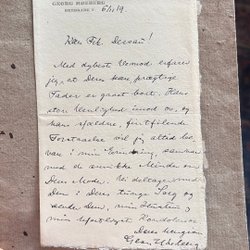 GEORG HØEBERG
6/11 19
Kære Frk. Dessau!
Med dybest Vemod erfarer
jeg, at Deres kære prægtige
Fader er gaaet bort. Hans
store Venlighed imod os, og
hans sjældne, fintfølende
Forstaaelse vil jeg altid be-
vare i min Erindring sammen
med de smukke Minder om
Deres Moder. Vi deltager med
Dem i Deres tunge Sorg og
sender Dem, min Hustru og
min hjerteligste Kondolence
Deres hengivne
Georg Høeberg